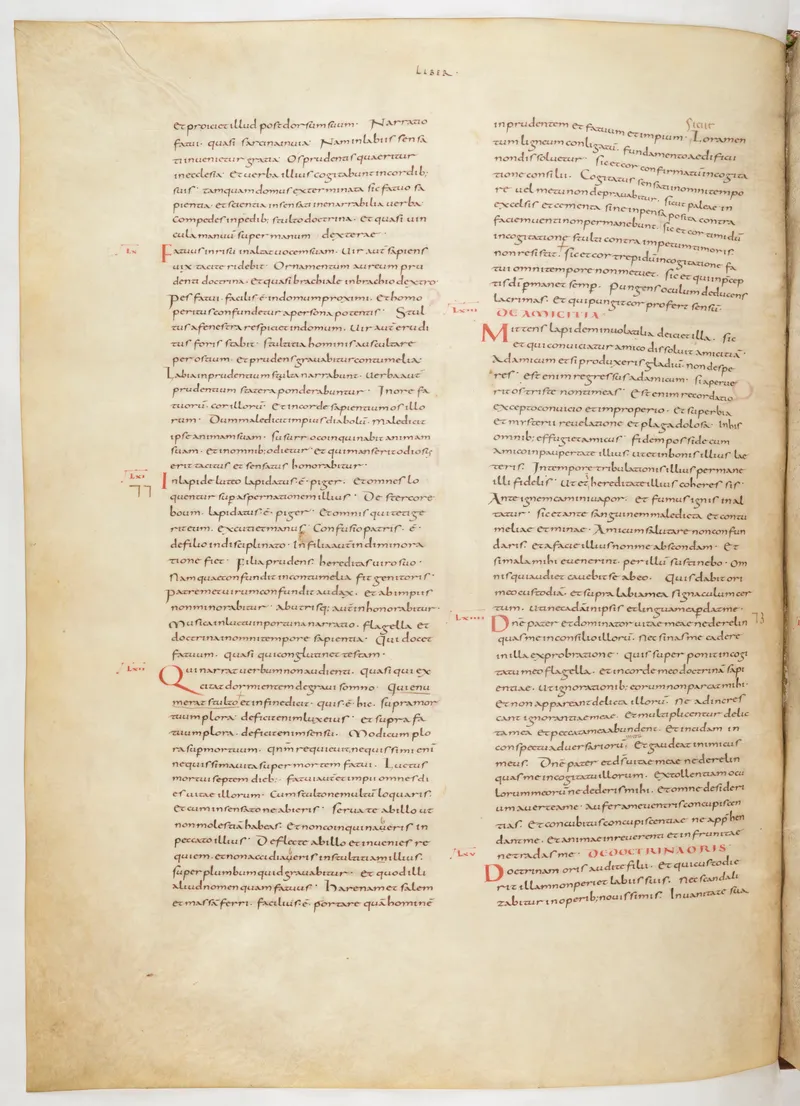 LIBER·
Et proiciet illud post dorsum suum· Narratio
fatui· quasi sarcina in uia· Nam in labiis sensa
ti inuenietur gratia· Os prudentis quaeritur
in ecclesia· Et uerba illius cogitabunt in cordib;
suis· tamquam domus exterminata sic fatuo sa
pientia· et scientia insensati inenarrabilia uerba·
Compedes in pedib; stulto doctrina· et quasi uin
cula manuũ super manum dexterae·
Lx
Fatuus in risu inaltat uocem suam· Uir aut sapiens
uix tacite ridebit· Ornamentum aureum pru
denti doctrina· et quasi brachiale in brachio dextro·
Pes fatui facilis ẽ in domum proximi· Et homo
peritus confundetur a persona potentis· Stul
tus a fenestra respiciet in domum· Uir aut erudi
tus foris stabit· stultitia hominis auscultare
per ostium· et prudens grauabitur contumelia·
Labia inprudentium stulta narrabunt· Uerba aut
prudentium statera ponderabuntur· In ore fa
tuorũ· cor illorũ· Et in corde sapientium os illo
rum· Dum maledicit impius diabolũ· maledicit
ipse animam suam· susurro coinquinabit animam
suam· et in omnib; odietur· et qui manserit odiosus
erit tacitus et sensatus honorabitur·
Lxi
In lapide luteo lapidatus ẽ piger· Et omnes lo
quentur sup aspernationem illius· De stercore
boum· lapidatus ẽ piger· Et omnis qui tetige
rit eum· excutiet manus· Confusio patris· ẽ·
de filio indisciplinato· In filia aut in diminora
tione fiet· Filia prudens hereditas uiro suo·
Nam quae confundit in contumelia fit genitoris·
patrem et uirum confundit audax· et ab impiis
non minorabitur· Ab utrisq; aut inhonorabitur·
Musica in luctu inportuna narratio· flagella et
doctrina in omni tempore sapientia· Qui docet
fatuum· quasi qui conglutinet testam·
Lxii
Qui narrat uerbum non audienti· quasi qui ex
citat dormientem de graui somno· Qui enu
merat stulto et in fine dicit· quis ẽ hic· supra mor
tuum plora· deficit enim lux eius· et supra fa
tuum plora· deficit enim sensu· Modicum plo
ra sup mortuum· qnm requieuit nequissimi eni
nequissima uita super mortem fatui· Luctus
mortui septem dieb; fatui aut et impii omnes di
es uitae illorum· Cum stulto ne multũ loquaris·
Et cum insensato ne abieris· serua te ab illo ut
non molestiã habeas· Et non coinquinaueris in
peccato illius· Deflecte ab illo et inuenies re
quiem· et non accidiaueris in stultitiam illius·
super plumbum quid grauabitur· et quod illi
aliud nomen quam fatuus· Harenam et salem
et massã ferri· facilius ẽ portare quã hominẽ
sicut
inprudentem et fatuum et impium· Loramen
tum ligneum conligatũ· fundamento aedificii
non dissoluetur· sic et cor confirmatũ in cogita
tione consilii· Cogitatus sensati in omni tempo
re uel metu non deprauabitur· sicut paleae in
excelsis et cementa sine inpensa posita contra
faciem uenti non permanebunt· sic et cor timidũ
in cogitatione stulti contra impetum timoris
non resistat· sic et cor trepidũ in cogitatione fa
tui omni tempore non metuet· sic et qui in p̃cep
tis di p̃manet semp· Pungens oculum deducens
lacrimas· Et qui pungit cor profert sensũ·
Lxiii DE AMICITIA·
Mittens lapidem in uolatilia deiciet illa· sic
et qui conuitiatur amico dissoluit amicitiã·
Ad amicum etsi produxeris gladiũ· non despe
res· est enim regressus ad amicum· si aperue
rit os triste non timeas· Est enim recordatio
excepto conuicio et improperio· Et superbia
et mysterii reuelatione et plaga dolosa· In his
omnib; effugiet amicus· fidem posside cum
amico in paupertate illius· ut et in bonis illius lae
teris· In tempore tribulationis illius permane
illi fidelis· Ut et hereditate illius coheres sis·
Ante ignem camini uapor· et fumus ignis inal
tatur· sic et ante sanguinem maledicta et contu
meliae et minae· Amicum salutare non confun
daris· et a facie illius non me abscondam· Et
si mala mihi euenerint· per illũ sustinebo· Om
nis qui audiet cauebit se ab eo· Quis dabit ori
meo custodiã· et supra labia mea signaculum cer
tum· ut ne cadã in ipsis et lingua mea p̃dat me·
Lxiiii
Dnẽ pater et dominator uitae meae ne derelin
quas me in consilio illorũ· nec sinas me cadere
in illa exprobratione· quis super ponit in cogi
tatu meo flagella· et in corde meo doctrinã sapi
entiae· ut ignorationib; eorum non parcat mihi·
Et non appareant delicta illorũ· Ne adincres
cant ignorantiae meae· Et multiplicentur delic
ta mea et peccata mea abundent· Et incidam in
conspectu aduersariorũ· Et gaudeat inimicus
meus· Dnẽ pater et ds uitae meae ne derelin
quas me in cogitatu illorum· Extollentiam ocu
lorum meorũ ne dederis mihi· Et omne desideri
um auerte a me· Aufer a me uentris concupiscen
tias· Et concubitus concupiscentiae ne app̃hen
dant me· et animae inreuerenti et infrunitae
ne tradas me· DE DOCTRINA ORIS
Lxv
Doctrinam oris audite filii· Et qui custodie
rit illam non periet labiis suis· Nec scandali
zabitur in operib; nouissimis· In uanitate sua